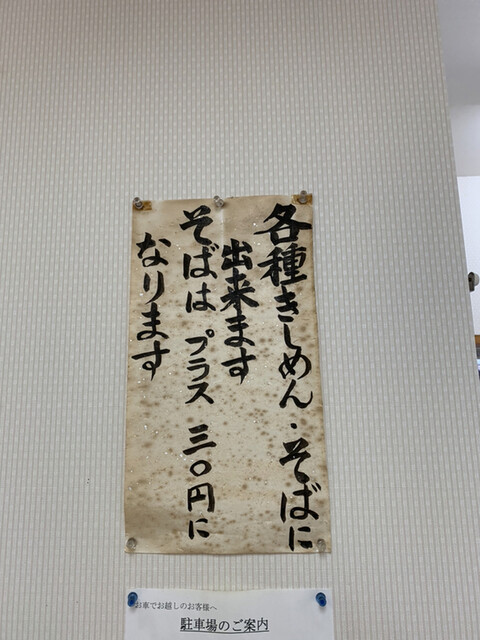 各種きしめん・そばに
出来ます
そばは プラス 三〇円に
なります
お車でお越しのお客様へ
駐車場のご案内